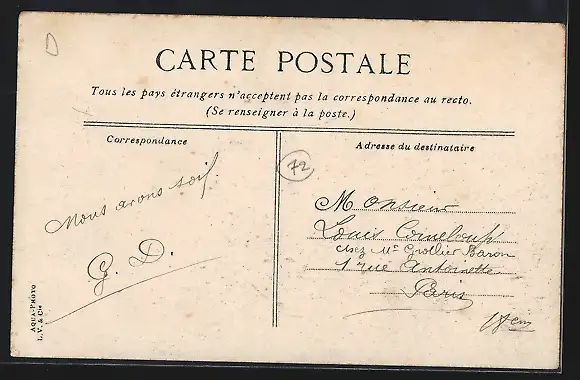 D
CARTE POSTALE
Tous les pays étrangers n'acceptent pas la correspondance au recto.
(Se renseigner à la poste.)
Correspondance
Nous avons soif.
G. D.
AQUA-PHOTO
L.V. & Cie
72
Adresse du destinataire
Monsieur
Louis Corneloup
chez Mr Grollier Baron
1 rue Antoinette
Paris